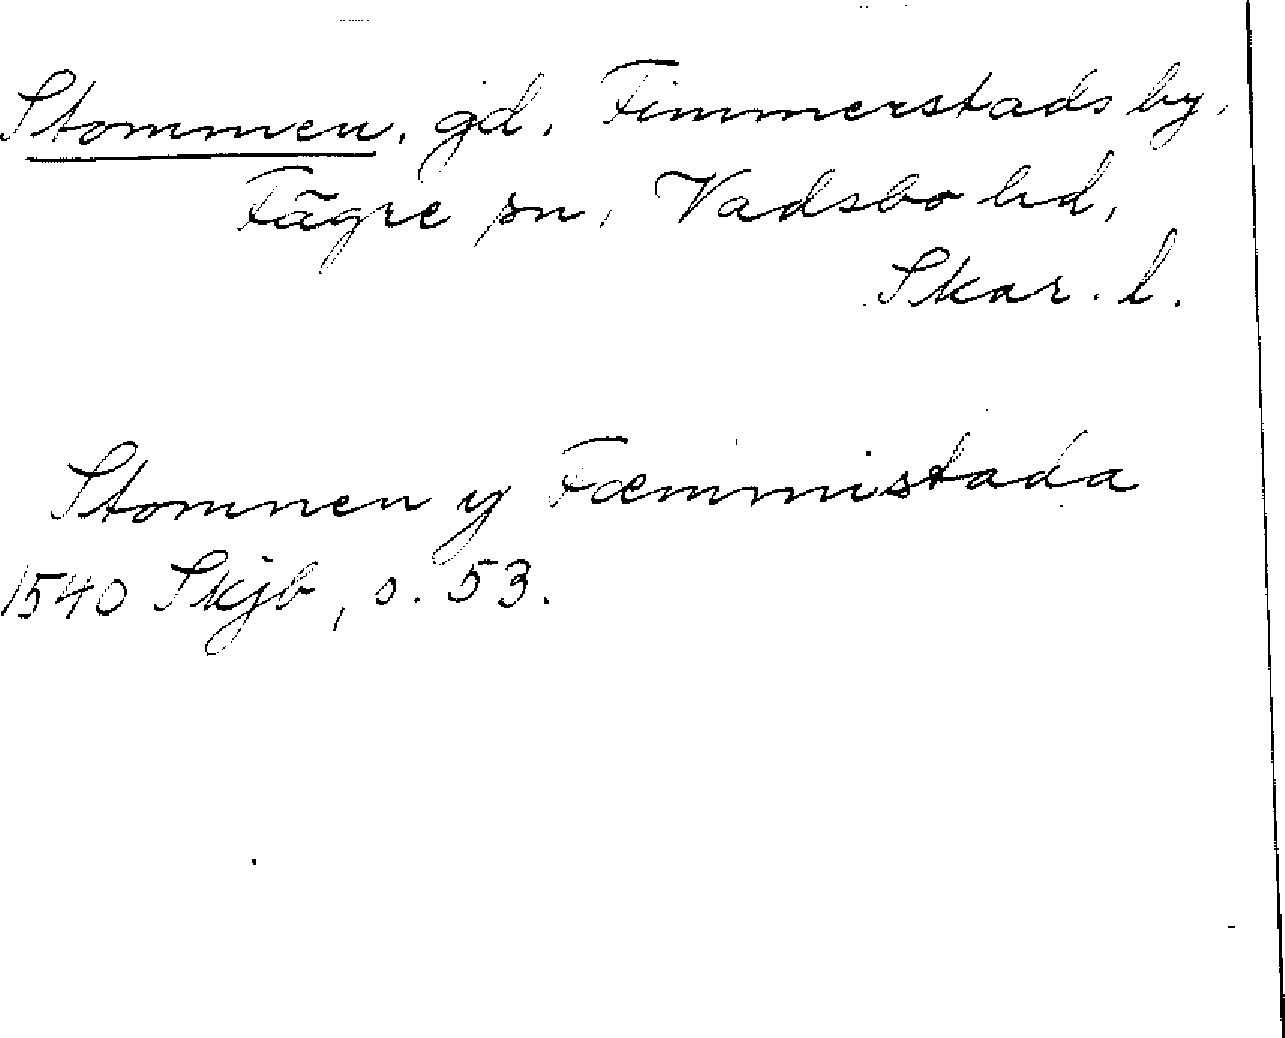 Stommen, gd, Fimmerstads by,
Fägre sn, Vadsbo hd,
Skar. l.
Stomnen y Fæmmistada
1540 Skjb, s. 53.